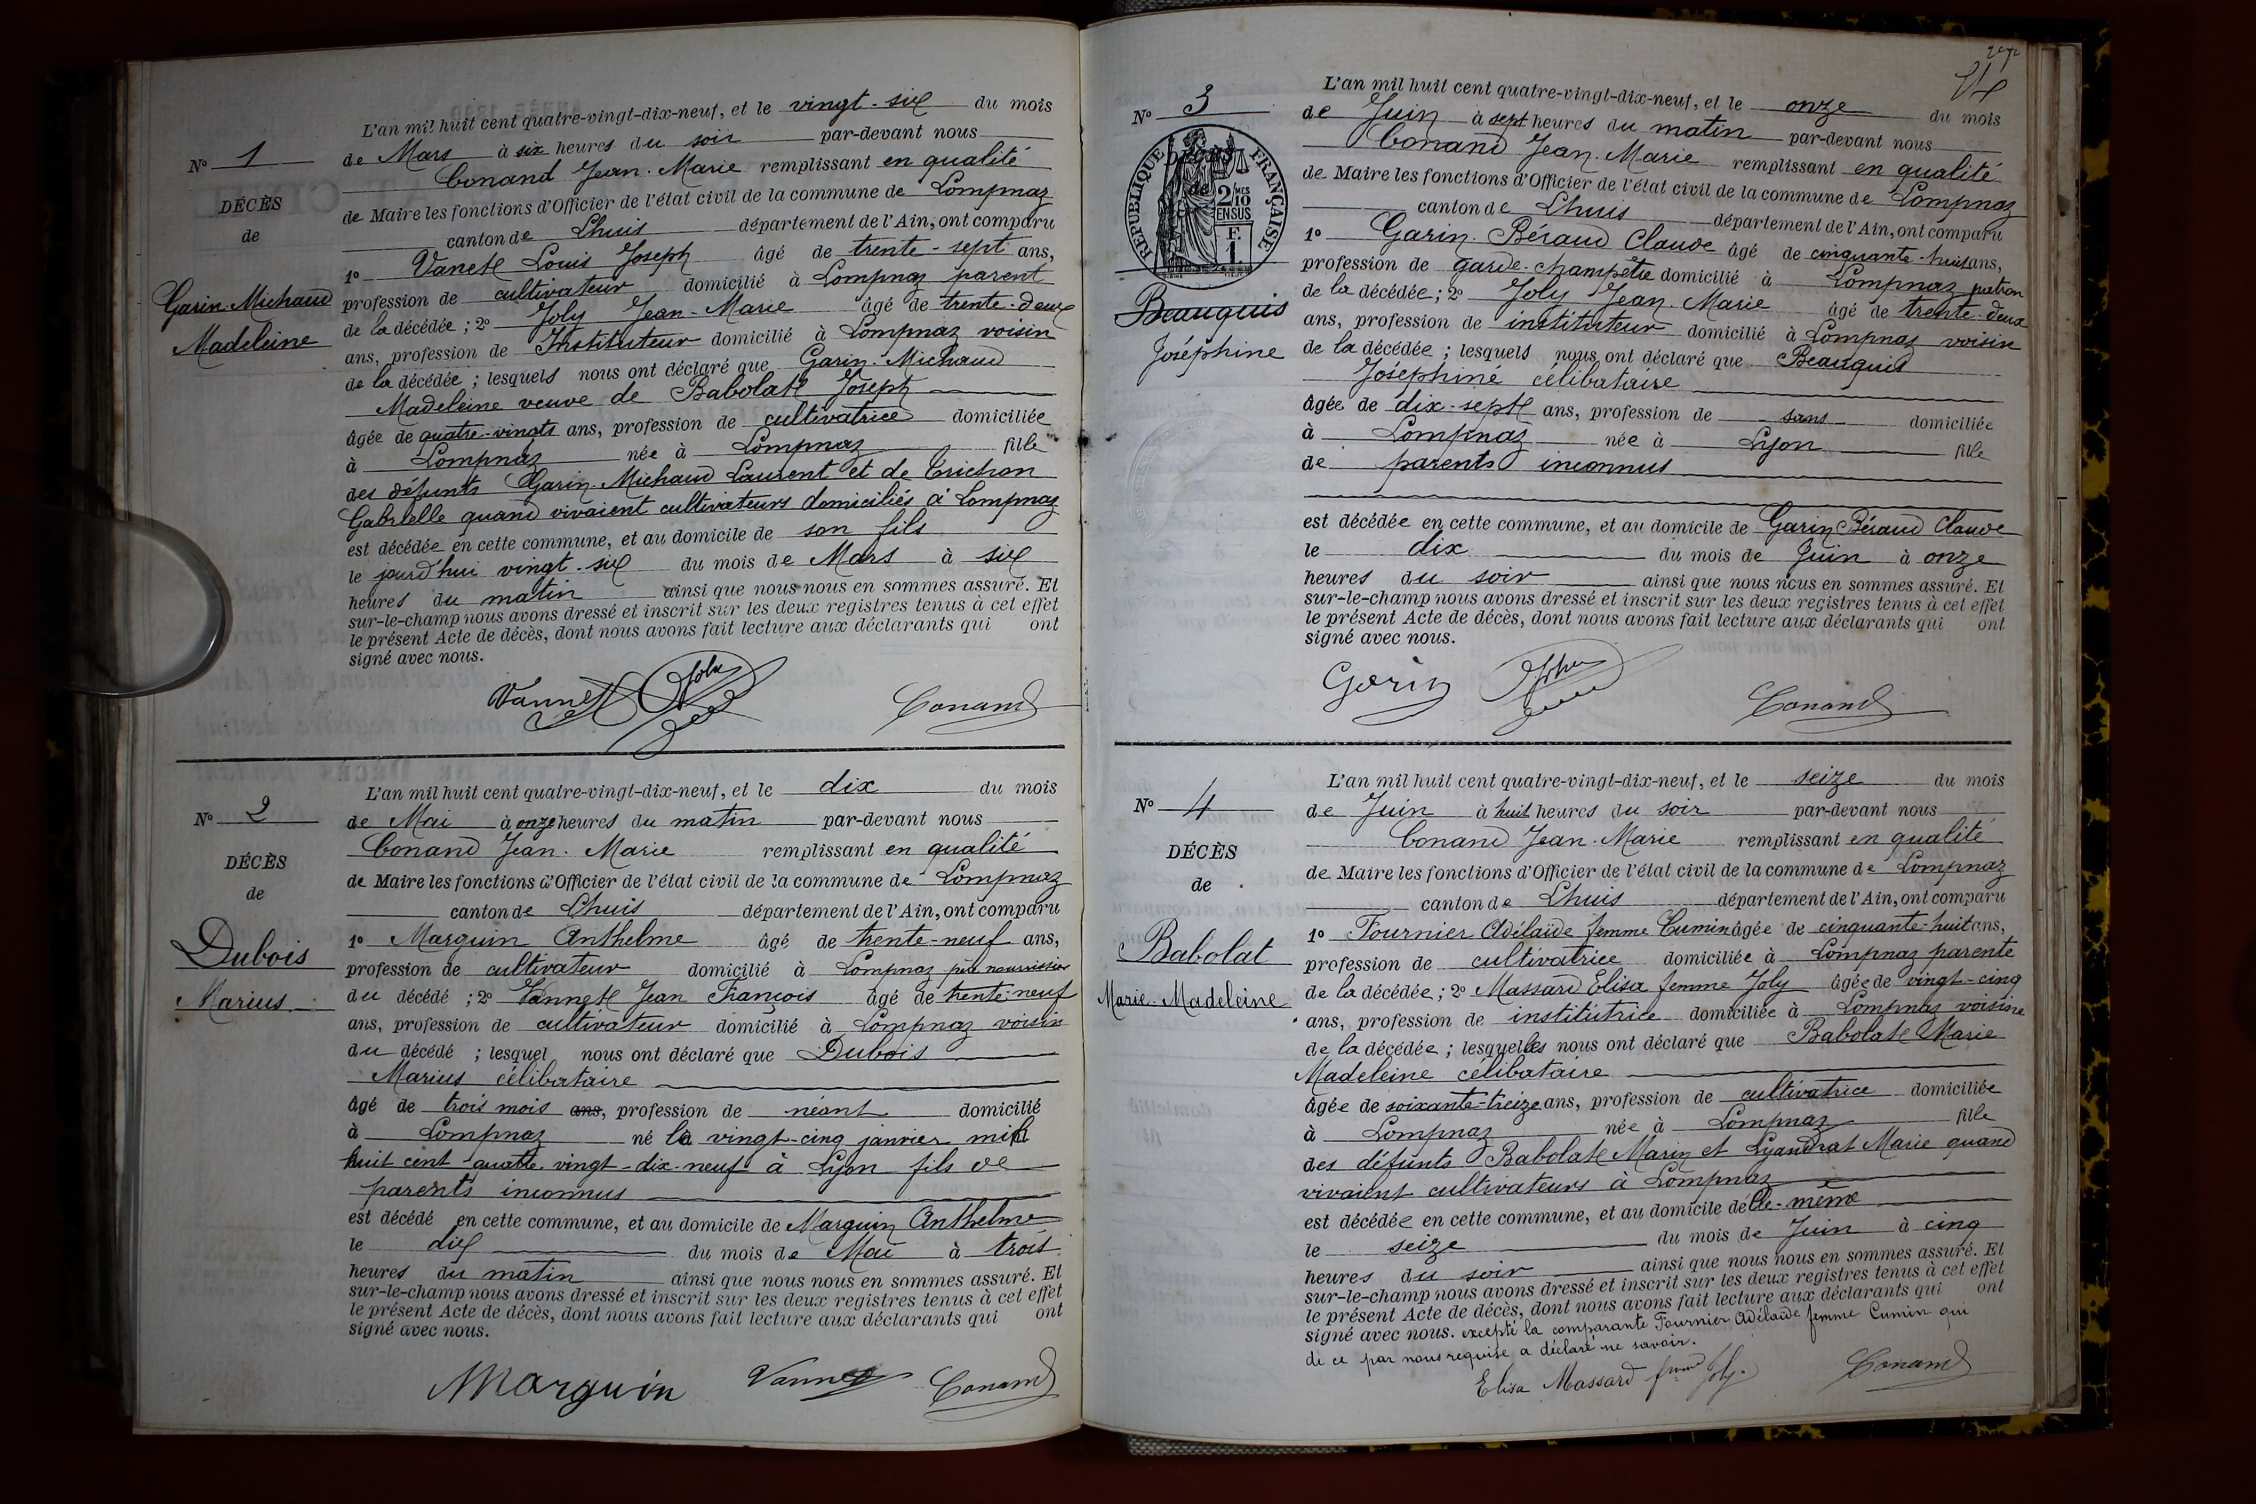 L'an mil huit cent quatre-vingt-dix-neuf, et le vingt-six du mois
de Mars à six heures du soir par-devant nous
Conand Jean-Marie remplissant en qualité
de Maire les fonctions d'Officier de l'état civil de la commune de Lompnaz
canton de Lhuis département de l'Ain, ont comparu
1º Vanett Louis Joseph âgé de trente-sept ans,
profession de cultivateur domicilié à Lompnaz parent
de la décédée ; 2º Joly Jean-Marie âgé de trente-deux
ans, profession de Instituteur domicilié à Lompnaz voisin
de la décédée ; lesquels nous ont déclaré que Garin-Michaud
Madeleine veuve de Babolat Joseph
âgée de quatre-vingts ans, profession de cultivatrice domiciliée
à Lompnaz née à Lompnaz fille
des défunts Garin-Michaud Laurent et de Trichon
Gabrielle quand vivaient cultivateurs domiciliés à Lompnaz
est décédée en cette commune, et au domicile de son fils
le jourd'hui vingt-six du mois de Mars à six
heures du matin ainsi que nous nous en sommes assuré. Et
sur-le-champ nous avons dressé et inscrit sur les deux registres tenus à cet effet
le présent Acte de décès, dont nous avons fait lecture aux déclarants qui ont
signé avec nous.
Nº 1
DÉCÈS
de
Garin-Michaud
Madeleine
Vannett Joly Conand
L'an mil huit cent quatre-vingt-dix-neuf, et le dix du mois
de Mai à onze heures du matin par-devant nous
Conand Jean-Marie remplissant en qualité
de Maire les fonctions d'Officier de l'état civil de la commune de Lompnaz
canton de Lhuis département de l'Ain, ont comparu
1º Marguin Anthelme âgé de trente-neuf ans,
profession de cultivateur domicilié à Lompnaz père nourricier
du décédé ; 2º Vannett Jean François âgé de trente-neuf
ans, profession de cultivateur domicilié à Lompnaz voisin
du décédé ; lesquel nous ont déclaré que Dubois
Marius célibataire
âgé de trois mois ans, profession de néant domicilié
à Lompnaz né le vingt-cinq janvier mil
huit cent quatre-vingt-dix-neuf à Lyon fils de
parents inconnus
est décédé en cette commune, et au domicile de Marguin Anthelme
le dix du mois de Mai à trois
heures du matin ainsi que nous nous en sommes assuré. Et
sur-le-champ nous avons dressé et inscrit sur les deux registres tenus à cet effet
le présent Acte de décès, dont nous avons fait lecture aux déclarants qui ont
signé avec nous.
Nº 2
DÉCÈS
de
Dubois
Marius
Marguin Vannett Conand
L'an mil huit cent quatre-vingt-dix-neuf, et le onze du mois
de Juin à sept heures du matin par-devant nous
Conand Jean-Marie remplissant en qualité
de Maire les fonctions d'Officier de l'état civil de la commune de Lompnaz
canton de Lhuis département de l'Ain, ont comparu
1º Garin-Béraud Claude âgé de cinquante-huit ans,
profession de garde-champêtre domicilié à Lompnaz patron
de la décédée ; 2º Joly Jean-Marie âgé de trente-deux
ans, profession de instituteur domicilié à Lompnaz voisin
de la décédée ; lesquels nous ont déclaré que Beauquis
Joséphine célibataire
âgée de dix-sept ans, profession de sans domiciliée
à Lompnaz née à Lyon fille
de parents inconnus
est décédée en cette commune, et au domicile de Garin Béraud Claude
le dix du mois de Juin à onze
heures du soir ainsi que nous nous en sommes assuré. Et
sur-le-champ nous avons dressé et inscrit sur les deux registres tenus à cet effet
le présent Acte de décès, dont nous avons fait lecture aux déclarants qui ont
signé avec nous.
Nº 3
RÉPUBLIQUE FRANÇAISE
2/10
EN SUS
F.
1
Beauquis
Joséphine
Garin Joly Conand
L'an mil huit cent quatre-vingt-dix-neuf, et le seize du mois
de Juin à huit heures du soir par-devant nous
Conand Jean-Marie remplissant en qualité
de Maire les fonctions d'Officier de l'état civil de la commune de Lompnaz
canton de Lhuis département de l'Ain, ont comparu
1º Fournier Adélaïde femme Cumin âgée de cinquante-huit ans,
profession de cultivatrice domiciliée à Lompnaz parente
de la décédée ; 2º Massard Elisa femme Joly âgée de vingt-cinq
ans, profession de institutrice domiciliée à Lompnaz voisine
de la décédée ; lesquelles nous ont déclaré que Babolat Marie
Madeleine célibataire
âgée de soixante-treize ans, profession de cultivatrice domiciliée
à Lompnaz née à Lompnaz fille
des défunts Babolat Marin et Lyandrat Marie quand
vivaient cultivateurs à Lompnaz
est décédée en cette commune, et au domicile d'elle-même
le seize du mois de Juin à cinq
heures du soir ainsi que nous nous en sommes assuré. Et
sur-le-champ nous avons dressé et inscrit sur les deux registres tenus à cet effet
le présent Acte de décès, dont nous avons fait lecture aux déclarants qui ont
signé avec nous. excepté la comparante Fournier Adélaïde femme Cumin qui
de ce par nous requise a déclaré ne savoir.
Nº 4
DÉCÈS
de
Babolat
Marie-Madeleine
Elisa Massard femme Joly. Conand